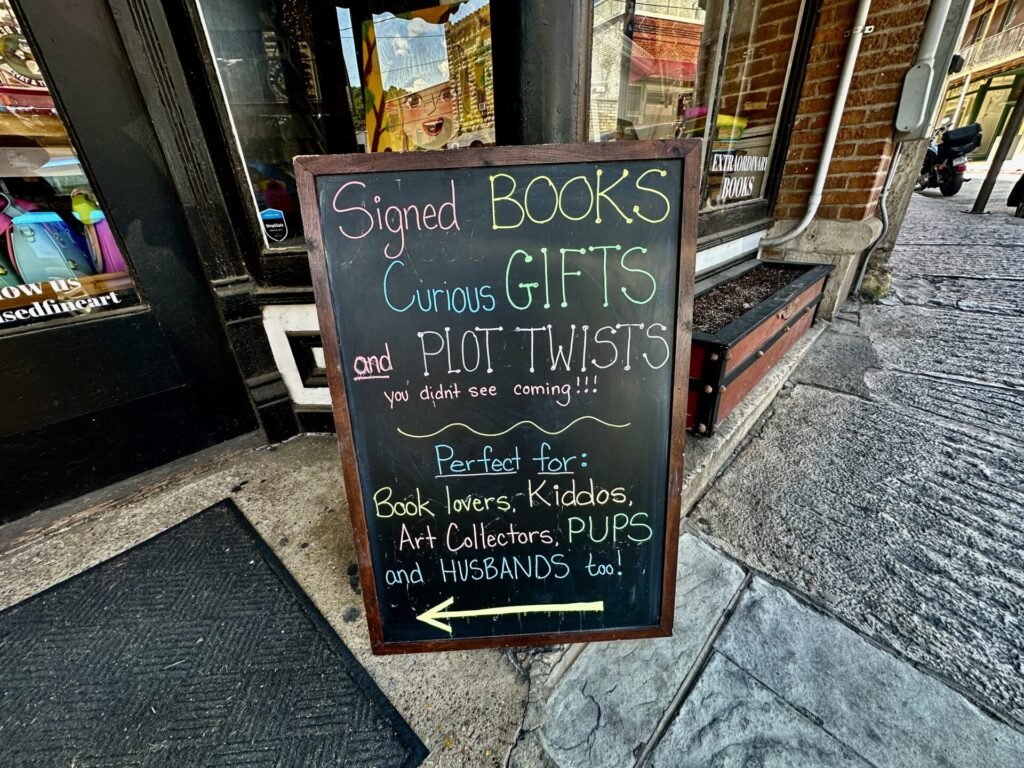 Signed BOOKS
Curious GIFTS
and PLOT TWISTS
you didn't see coming!!!
Perfect for:
Book lovers, Kiddos,
Art Collectors, PUPS
and HUSBANDS too!
EXTRAORDINARY
BOOKS
SimpliSafe
low us
usedfineart